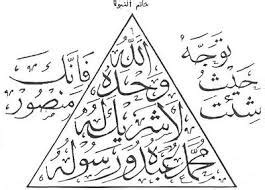 خاتم النبوة
الله
وحده
لا شريك له
محمد عبده ورسوله
توجه
حيث
شئت
فإنك
منصور